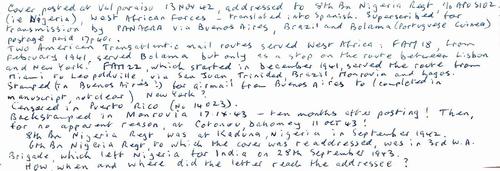 Cover posted at Valparaiso 13 NOV 42, addressed to 8th Bn Nigeria Regt, % APO SIDE.
(ie Nigeria), West African Forces - translated into Spanish. Superscribed for
transmission by PANAGRA via Buenos Aires, Brazil and Bolama (Portuguese Guinea)
postage paid
Two American Transatlantic mail routes served West Africa: FAM 18, from
February 1941, served Bolama but only as a stop on the route between Lisbon
and New York. FAM 22, which started in December 1941, served the route from
Miami to Leopoldville, via San Juan Trinidad Brazil, Monrovia and Lagos.
Stamped (in Buenos Aires?) for airmail from Buenos Aires to (completed in
manuscript, not clear) New York?
Censored in Puerto Rico (No 14023).
Backstamped in Monrovia 17.9.43 - ten months after posting! Then,
for no apparent reason, at Cotonou Dahomey 11 OCT 43!
8th Bn Nigeria Regt was at Kaduna, Nigeria in September 1942.
6th Bn Nigeria Regt, to which the cover was readdressed, was in 3rd W.A.
Brigade, which left Nigeria for India on 28th September 1943.
How, when and where did the letter reach the addressee?